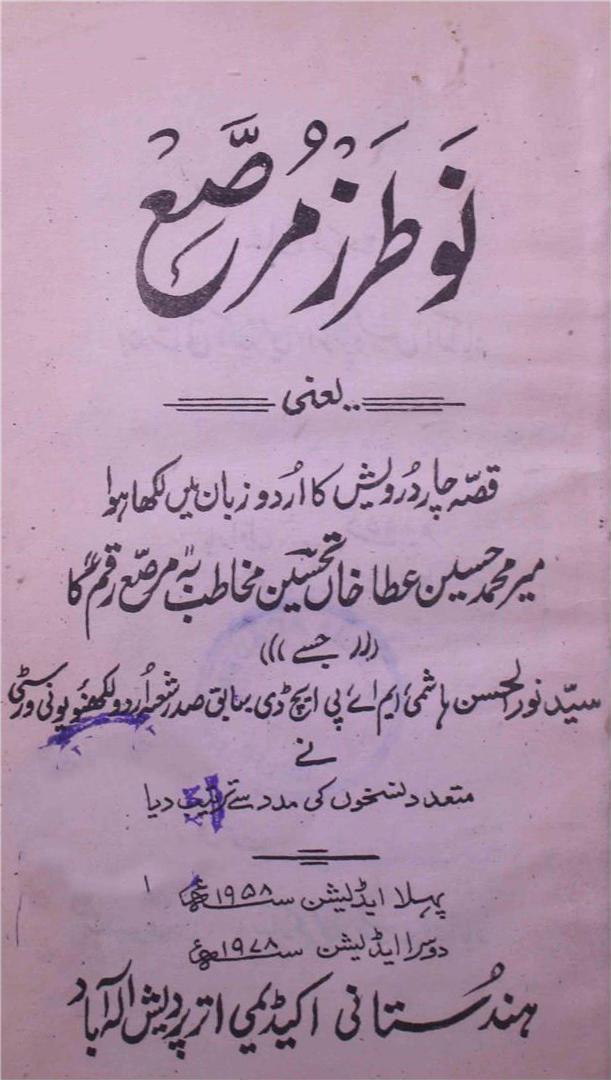 نَو طَرزِ مُرصَّع
یعنی
قصّہ چار درویش کا اُردو زبان میں لکھا ہوا
میر محمد حسین عطا خاں تحسین مخاطب بہ "مرصّع رقم" کا
((( جسے )))
سیّد نور الحسن ہاشمی ایم اے، پی ایچ ڈی سابق صدر شعبۂ اُردو لکھنؤ یونی ورسٹی
نے
متعدد نسخوں کی مدد سے ترتیب دیا
پہلا ایڈیشن ۱۹۵۸ء
دوسرا ایڈیشن ۱۹۷۸ء
ہندُستانی اکیڈیمی اتر پردیش الہ آباد